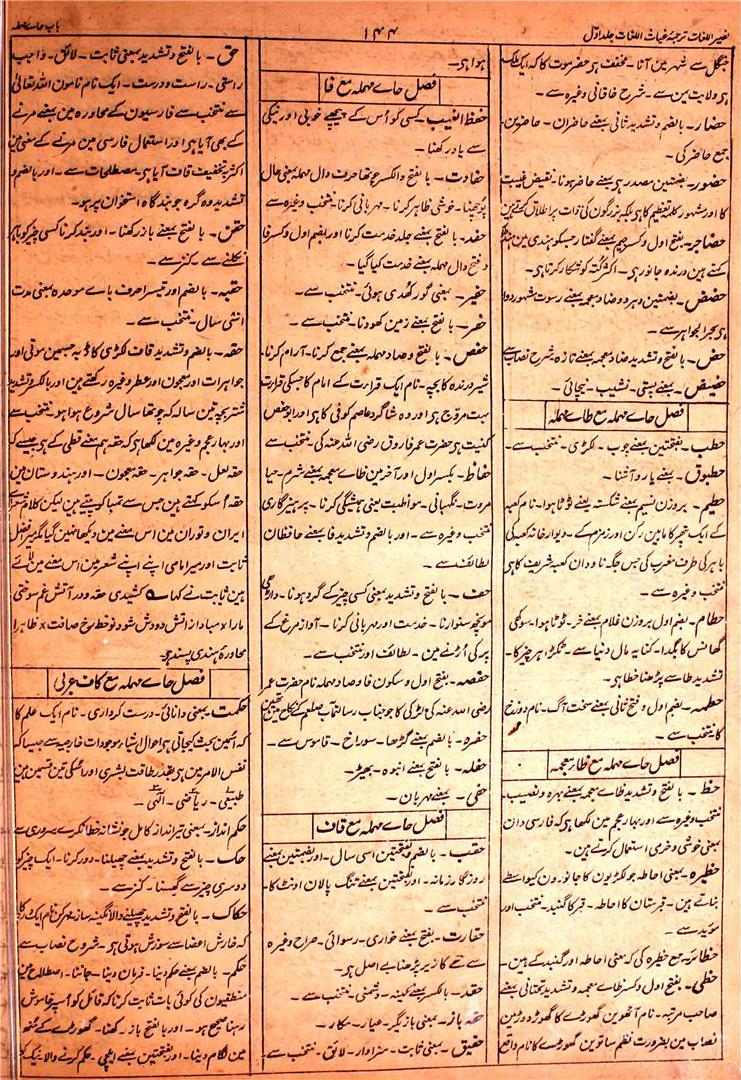 نصیر اللغات ترجمۂ غیاث اللغات جلد اول
۱۴۴
باب حاے مہملہ
جنگل سے شہر مین آنا - مخفف ہی حضر موت کا کہ ایک ملک
ہی ولایت یمن سے - شرح خاقانی وغیرہ سے -
حضار - بالضم وتشدید ثانی بمعنے حاضران - حاضرین
جمع حاضر کی -
حضور - بضمتین مصدر ہی بمعنے حاضر ہونا - نقیض غیبت
کا اور مشہور کلمہ تعظیم کا ہی بلکہ بزرگون کی ذات پر اطلاق کرتے ہین
حضاجر - بفتح اول وکسر جیم بمعنے گفتار جسکو ہندی مین
کہتے ہین درندہ جانور ہی - اکثر کتہ کو شکار کرتا ہی -
حضض - بضمتین وہر دو ضاد معجمہ بمعنے رسوت مشہور دوا
ہی بحر الجواہر سے -
حض - بالفتح وتشدید ضاد معجمہ بمعنے تازہ شرح نصاب سے
حضیض - بمعنے پستی - نشیب - نیچائی -
فصل حاے مہملہ مع طاے مہملہ
حطب - بفتحتین بمعنے چوب - لکڑی - منتخب سے -
حطبوق - بمعنے یار و آشنا -
حطیم - بروزن نسیم بمعنے شکستہ یعنے ٹوٹا ہوا - نام کعبہ
کے ایک پتھر کا مابین رکن اور زمزم کے - دیوار خانہ کعبہ کی
باہر کی طرف مغرب کی جس جگہ ناودان کعبہ شریف کا ہی
منتخب وغیرہ سے -
حطام - بضم اول بروزن غلام بمعنے خر - ٹوٹا ہوا - سوکھی
گھانس کا گدا - کنایہ مال دنیا سے - ٹکڑا ہر چیز کا -
تشدید طا سے پڑھنا خطا ہی -
حطمہ - بضم اول وفتح ثانی بمعنے سخت آگ - نام دوزخ
کا منتخب سے -
فصل حاے مہملہ مع ظاے معجمہ
حظ - بالفتح وتشدید ظاے معجمہ بمعنے بہرہ ونصیب -
منتخب وغیرہ سے اور بہار عجم مین لکھا ہی کہ فارسی دان
بمعنی خوشی وخرمی استعمال کرتے ہین -
حظیرہ - بمعنی احاطہ جو لکڑیون کا جانورون کیواسطے
بناتے ہین - قبرستان کا احاطہ - قبر کا گنبد - منتخب اور
موید سے -
حظائر - جمع حظیرہ کی کہ بمعنی احاطہ اور گنبد کے ہین -
حظی - بفتح اول وکسر ظاے معجمہ وتشدید تحتانی بمعنے
صاحب مرتبہ - نام آٹھوین گھوڑے کا گھوڑ دوڑ مین
نصاب مین بضرورت نظم ساتوین گھوڑے کا نام واقع
ہوا ہی -
فصل حاے مہملہ مع فا
حفظ الغیب - کسی کو اُس کے پیچھے خوبی اور نیکی
سے یاد رکھنا -
حفاوت - بالفتح والکسر چوتھا حرف دال مہملہ بمعنی حال
پوچھنا - خوشی ظاہر کرنا - مہربانی کرنا - منتخب وغیرہ سے
حفد - بالفتح بمعنے جلد خدمت کرنا اور بضم اول وکسر فا
وفتح دال مہملہ بمعنے خدمت کیا گیا -
حفیر - بمعنی گور کھدی ہوئی - منتخب سے -
حفر - بالفتح بمعنے زمین کھودنا - منتخب سے -
حفص - بالفتح وصاد مہملہ بمعنے جمع کرنا - آرام کرنا -
شیر درندہ کا بچہ - نام ایک قرارت کے امام کا جسکی قرارت
بہت مروج ہی اور وہ شاگرد عاصم کوفی کا ہی اور ابو حفص
کنیت ہی حضرت عمر فاروق رضی اللہ عنہ کی - منتخب سے
حفاظ - بکسر اول اور آخر مین ظاے معجمہ بمعنے شرم - حیا
مروت - نگہبانی - مواظبت یعنی ہمیشگی کرنا - پرہیزگاری
منتخب وغیرہ سے - اور بالضم وتشدید فا بمعنے حافظان
لطائف سے -
حف - بالفتح وتشدید بمعنی کسی چیز کے گرد ہونا - داڑھی
مونچھ سنوارنا - خدمت اور مہربانی کرنا - آواز مرغ کے
پر کی اُڑنے مین - لطائف اور منتخب سے -
حفصہ - بفتح اول وسکون فا وصاد مہملہ نام حضرت عمر
رضی اللہ عنہ کی لڑکی کا جو جناب رسالتمآب صلعم کے نکاح مین تھین
حفرہ - بالضم بمعنے گڑھا - سوراخ - قاموس سے -
حفلہ - بالفتح بمعنے انبوہ - بھیڑ -
حفی - بمعنے مہربان -
فصل حاے مہملہ مع قاف
حقب - بالضم وبضمتین اسی سال - اور بضمتین بمعنے
روزگار - زمانہ - اور بفتحتین بمعنے تنگ پالان اونٹ کا -
منتخب سے -
حقارت - بفتح بمعنے خواری - رسوائی - صراح وغیرہ
سے حے کا زیر پڑھنا بے اصل ہی -
حقد - بالکسر بمعنے کینہ - دشمنی - منتخب سے -
حقہ باز - بمعنی بازیگر - عیار - مکار -
حقیق - بمعنی ثابت - سزاوار - لائق - منتخب سے -
حق - بالفتح وتشدید بمعنی ثابت - لائق - واجب
راستی - راست ودرست - ایک نام نامون اللہ تعالیٰ
سے منتخب سے فارسیون کے محاورہ مین بمعنے مرنے
کے بھی آیا ہی اور استعمال فارسی مین مرنے کے معنی مین
اکثر بتخفیف قاف آیا ہی - مصطلحات سے - اور بالضم و
تشدید وہ گرہ جو بندگاہ استخوان پر ہو -
حقن - بالفتح بمعنے باز رکھنا - اور بند کرنا کسی چیز کو باہر
نکلنے سے - کنز سے -
حقبہ - بالضم اور تیسرا حرف باے موحدہ بمعنی مدت
اسّی سال - منتخب سے -
حقہ - بالضم وتشدید قاف لکڑی کا ڈبہ جسمین موتی اور
جواہرات اور معجون اور عطر وغیرہ رکھتے ہین اور بالکسر وتشدید
شتر بچہ تین سالہ کہ چوتھا سال شروع ہوا ہو - منتخب سے
اور بہار عجم وغیرہ مین لکھا ہی کہ حقہ بمعنے قطی کے ہی جیسے کہ
حقہ لعل - حقہ جواہر - حقہ معجون - اور ہندوستان مین
حقہ اُسکو کہتے ہین جس سے تمباکو پیتے ہین لیکن کلام شعراے
ایران وتوران مین اس معنے مین دیکھا نہین گیا مگر میر افضل
ثابت اور میر امامی اپنے اپنے شعر مین اس معنے مین لائے
ہین ثابت نے کہا ہے کشیدی حقہ ودر آتش غم سوختی
مارا × مبادا ز آتش دودش شود نو خط رخ صافت × ظاہرا
محاورہ ہندی پسند ہو -
فصل حاے مہملہ مع کاف عربی
حکمت - بمعنی دانائی - درست کرداری - نام ایک علم کا
کہ اُسمین بحث کیجاتی ہی احوال اشیا موجودات خارجیہ سے جیسا کہ
نفس الامر مین ہی بقدر طاقت بشری اور اُسکی تین قسمین ہین
طبیعی - ریاضی - الٰہی -
حکم انداز - بمعنی تیر انداز کامل جو نشانہ خطا نکرے سروری سے
حک - بالفتح وتشدید بمعنے چھیلنا - دور کرنا - ایک چیز کو
دوسری چیز سے گھسنا - کنز سے -
حکاک - بالفتح وتشدید چھیلنے والا نگینہ ساز مہر کن نام ایک
کہ خارش اعضا سے سوزش ہوتی ہی - شروح نصاب سے
حکم - بالضم بمعنے حکم دینا - فرمان دینا - جاننا - اصطلاح مین
منطقیون کی کوئی بات ثابت کرنا کہ قائل کو اُسپر خاموش
رہنا صحیح ہو - اور بالفتح باز رکھنا - گھوڑے کے منھ
مین لگام دینا - اور بفتحتین بمعنے ایلچی - حکم کرنے والا - نیک